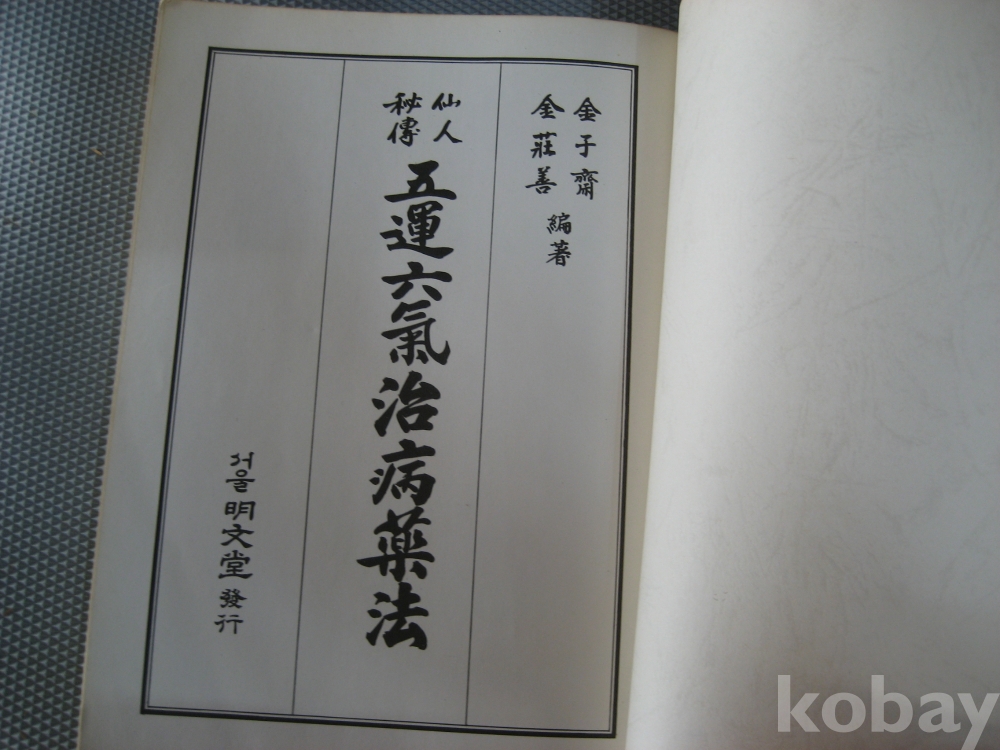 金于齋
金莊善
編著
仙人
秘傳
五運六氣治病藥法
서울 明文堂 發行
kobay